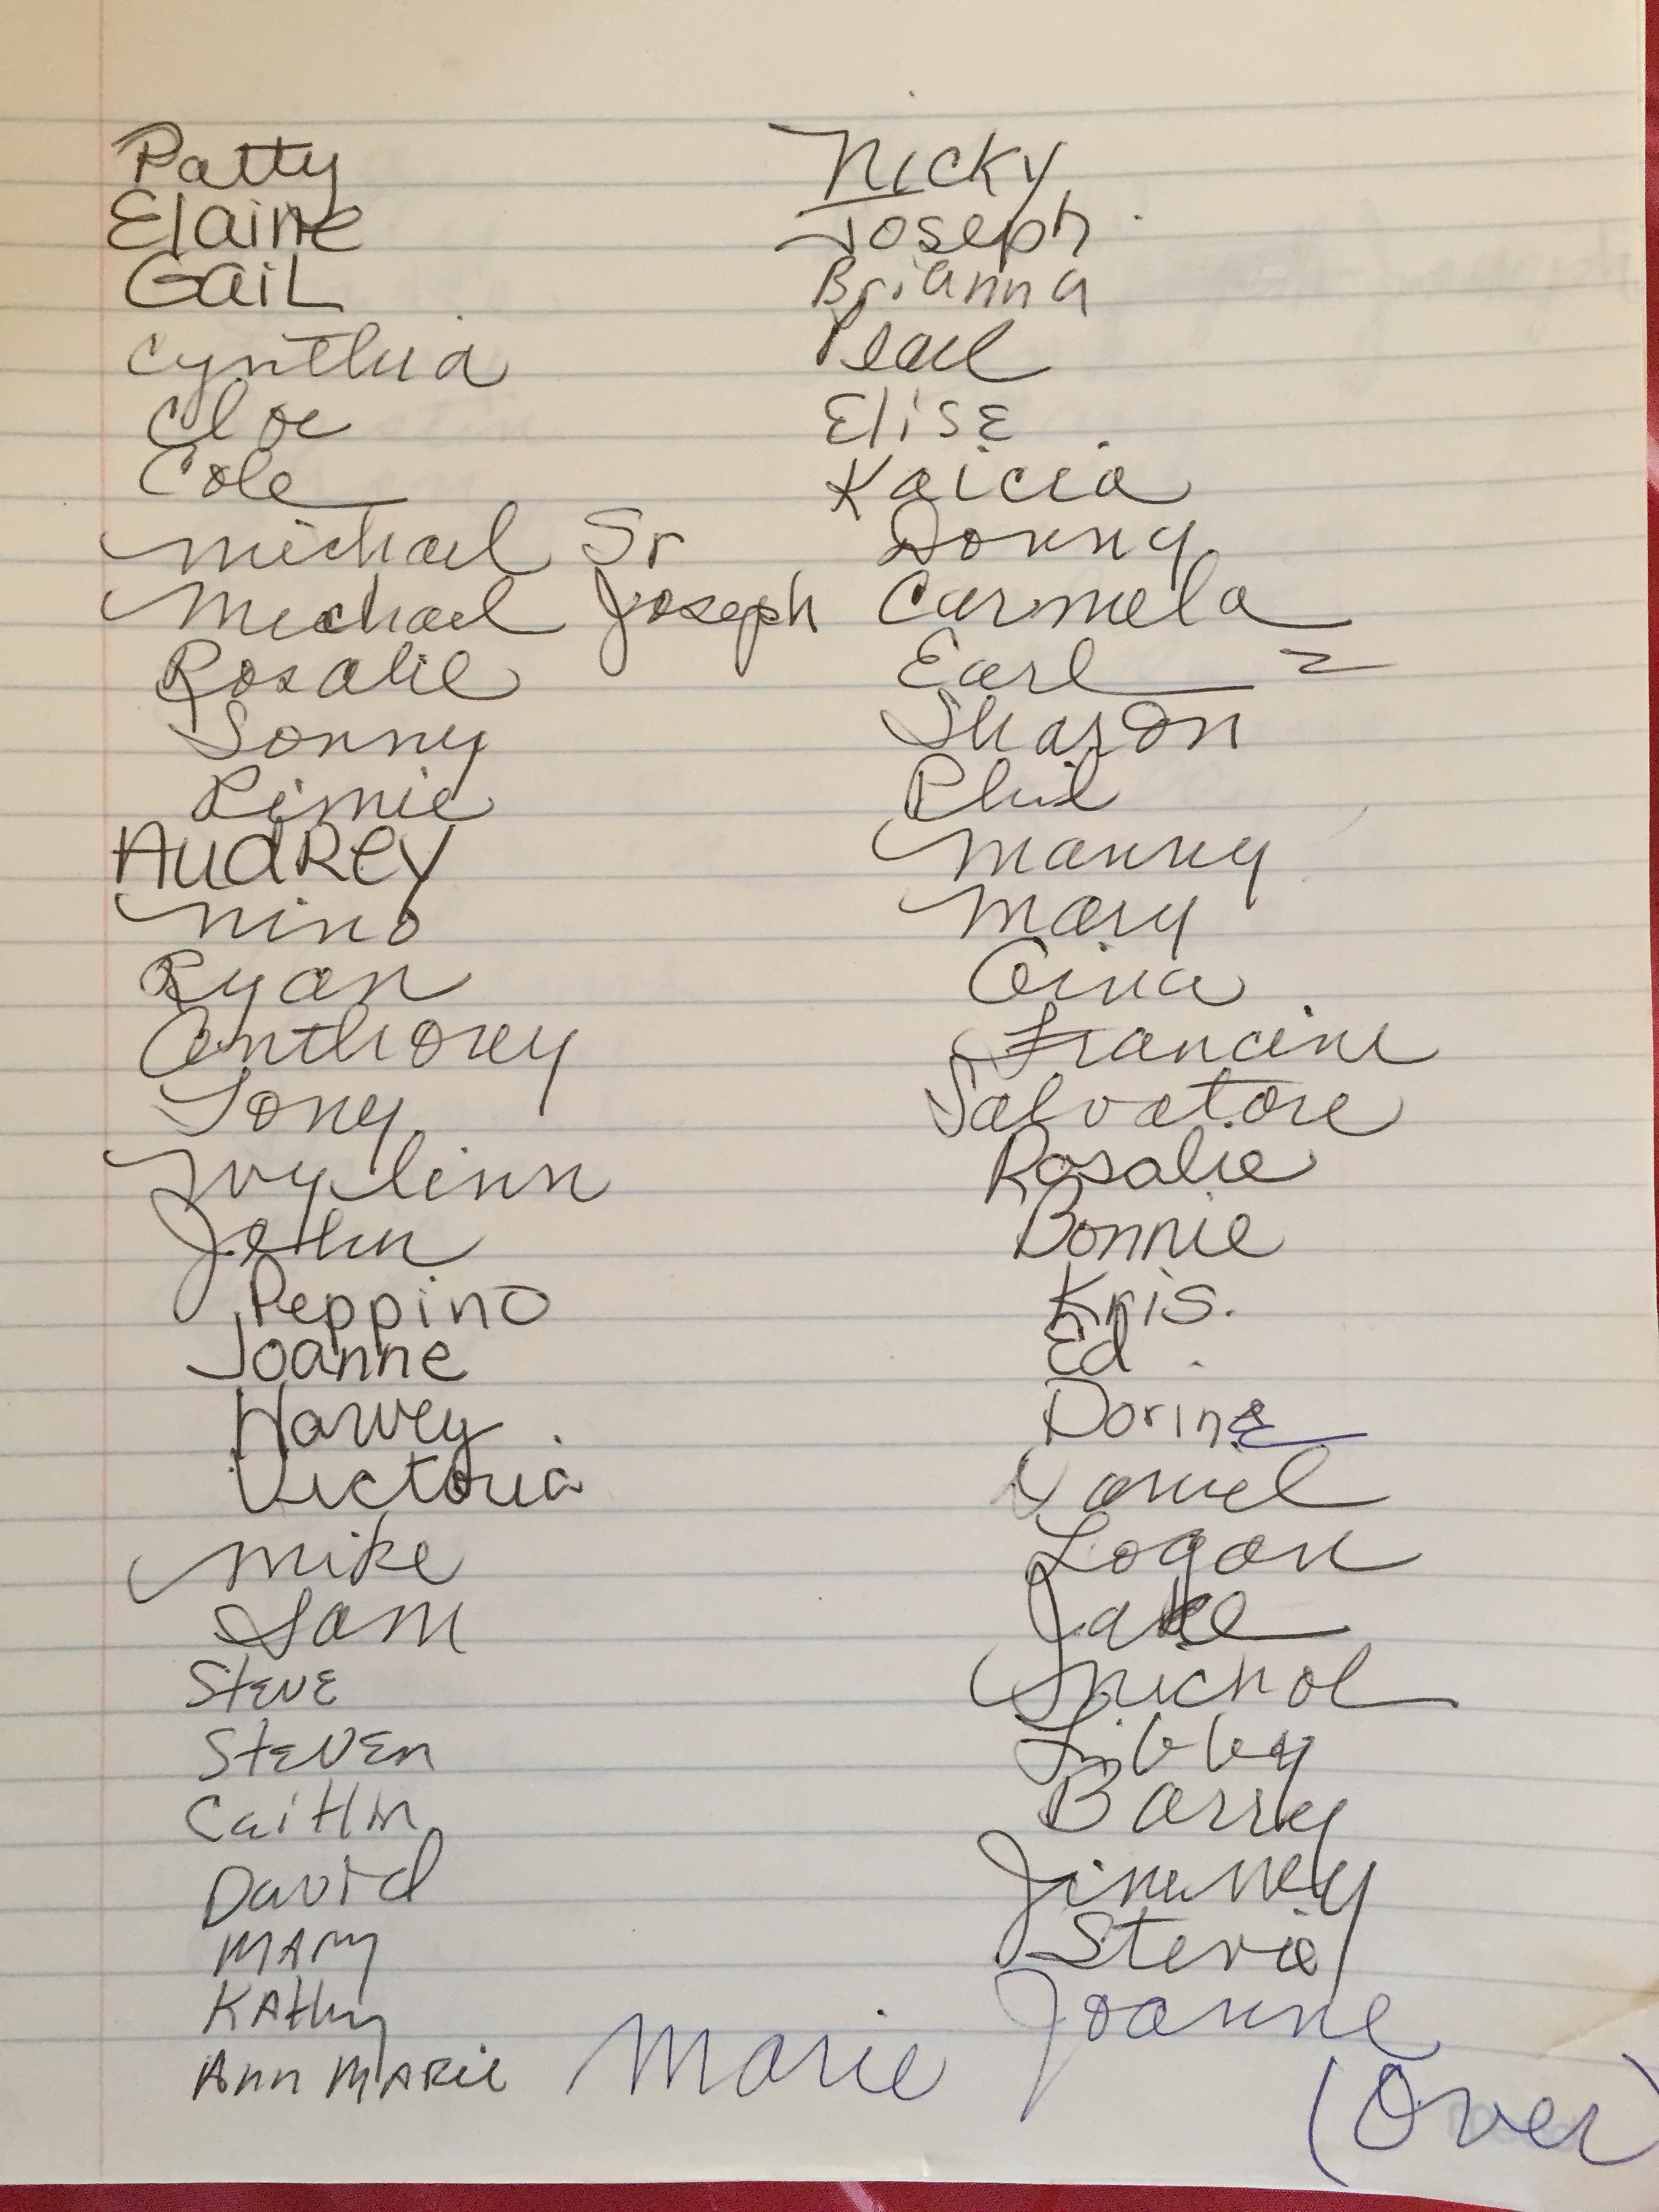 Patty
Elaine
Gail
Cynthia
Cloe
Cole
Michael Sr
Michael Joseph
Rosalie
Sonny
Audrey
Nino
Ryan
Anthony
Tony
Ivylinn
John
Peppino
Joanne
Harvey
Victoria
Mike
Sam
Steve
Steven
Caitlin
David
Mary
Kathy
Ann Marie
Marie
Nicky
Joseph
Brianna
Pearl
Elise
Kaicia
Donny
Carmela
Earl
Sharon
Phil
Manny
Mary
Gina
Francine
Salvatore
Rosalie
Bonnie
Kris.
Ed
Dorine
Daniel
Logan
Jake
Nichol
Libby
Barry
Jimmey
Stevie
Joanne
(Over)